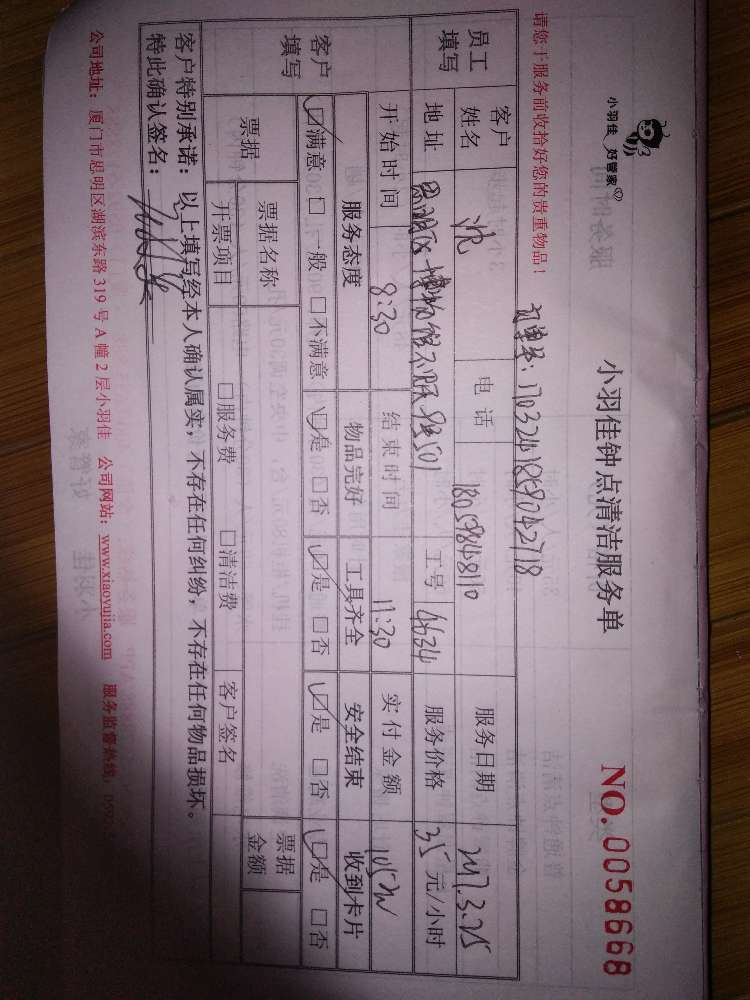 小羽佳 好管家
小羽佳钟点清洁服务单
NO. 0058668
请您于服务前收拾好您的贵重物品!
订单号:1703241859042718
员工填写 客户姓名 沈 电话 18059848110 服务日期 2017.3.25
地址 思明区 501 工号 4634 服务价格 35元/小时
客户填写 开始时间 8:30 结束时间 11:30 实付金额 105元
服务态度 物品完好 工具齐全 安全结束 收到卡片
☑满意 □一般 □不满意 ☑是 □否 ☑是 □否 ☑是 □否 ☑是 □否
票据 票据名称 票据金额
开票项目 □服务费 □清洁费 客户签名
客户特别承诺:以上填写经本人确认属实,不存在任何纠纷,不存在任何物品损坏。
特此确认签名:
公司地址:厦门市思明区湖滨东路319号A幢2层小羽佳 公司网站:www.xiaoyujia.com 服务监督热线: